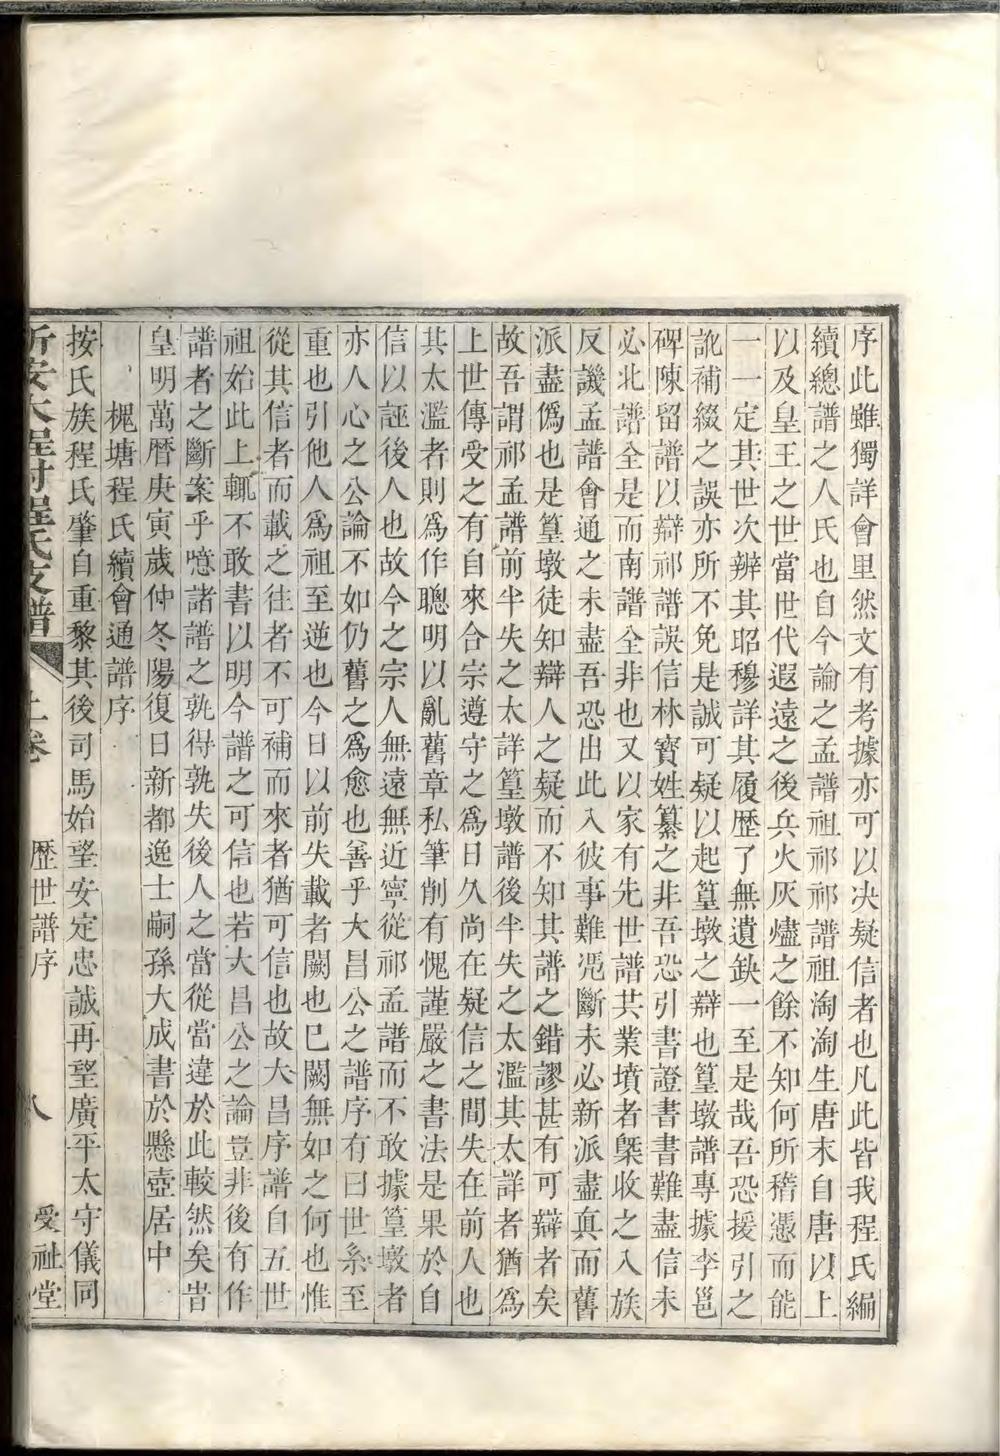 序此雖獨詳會里然文有考據亦可以决疑信者也凡此皆我程氏編
續總譜之人氏也自今論之孟譜祖祁祁譜祖淘淘生唐末自唐以上
以及皇王之世當世代遐遠之後兵火灰燼之餘不知何所稽憑而能
一一定其世次辨其昭穆詳其履歷了無遺缺一至是哉吾恐援引之
訛補綴之誤亦所不免是誠可疑以起篁墩之辯也篁墩譜專據李邕
碑陳留譜以辯祁譜誤信林寶姓纂之非吾恐引書證書書難盡信未
必北譜全是而南譜全非也又以家有先世譜共業墳者槩收之入族
反譏孟譜會通之未盡吾恐出此入彼事難凴斷未必新派盡真而舊
派盡僞也是篁墩徒知辯人之疑而不知其譜之錯謬甚有可辯者矣
故吾謂祁孟譜前半失之太詳篁墩譜後半失之太濫其太詳者猶爲
上世傳受之有自來合宗遵守之爲日久尚在疑信之間失在前人也
其太濫者則爲作聰明以亂舊章私筆削有愧謹嚴之書法是果於自
信以誣後人也故今之宗人無遠無近寧從祁孟譜而不敢據篁墩者
亦人心之公論不如仍舊之爲愈也善乎大昌公之譜序有曰世系至
重也引他人爲祖至逆也今日以前失載者闕也已闕無如之何也惟
從其信者而載之往者不可補而來者猶可信也故大昌序譜自五世
祖始此上輒不敢書以明今譜之可信也若大昌公之論豈非後有作
譜者之斷案乎噫諸譜之孰得孰失後人之當從當違於此較然矣旹
皇明萬曆庚寅歲仲冬陽復日新都逸士嗣孫大成書於懸壺居中
槐塘程氏續會通譜序
按氏族程氏肇自重黎其後司馬始望安定忠誠再望廣平太守儀同
新安大程村程氏支譜 上卷 歷世譜序 八 受祉堂